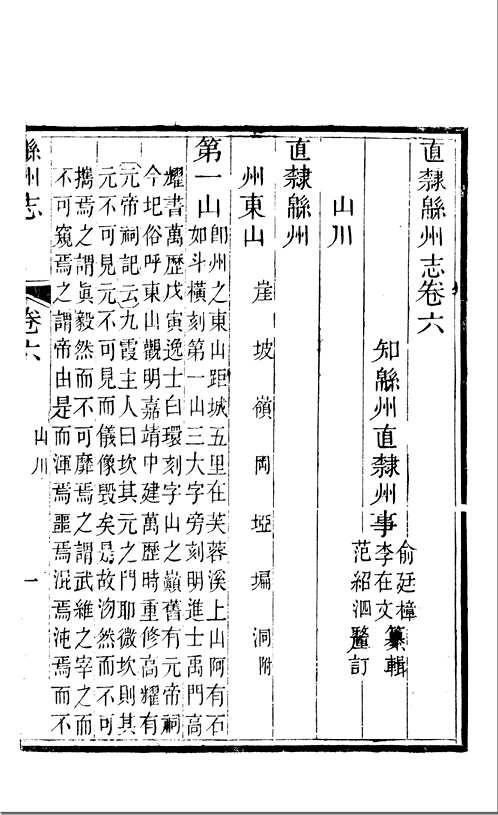 直隸緜州志卷六
知緜州直隸州事
俞廷樟
李在文
范紹泗
纂輯
鳌訂
山川
直隸緜州
州東山 崖坡嶺岡埡塥洞附
第一山 卽州之東山距城五里在芙蓉溪上山阿有石
如斗橫刻第一山三大字旁刻明進士禹門高
耀書萬歷戊寅逸士白環刻字山之巔舊有元帝祠
今圯俗呼東山觀明嘉靖中建萬歷時重修高耀有
元帝祠記云九霞主人曰坎其元之門耶微坎則其
元不可見元不可見而儀像毀矣是故沕然而不可
攜焉之謂眞毅然而不可靡焉之謂武維之宰之而
不可窺焉之謂帝由是而渾焉噩焉混焉沌焉而不
緜州志
卷六
山川
一